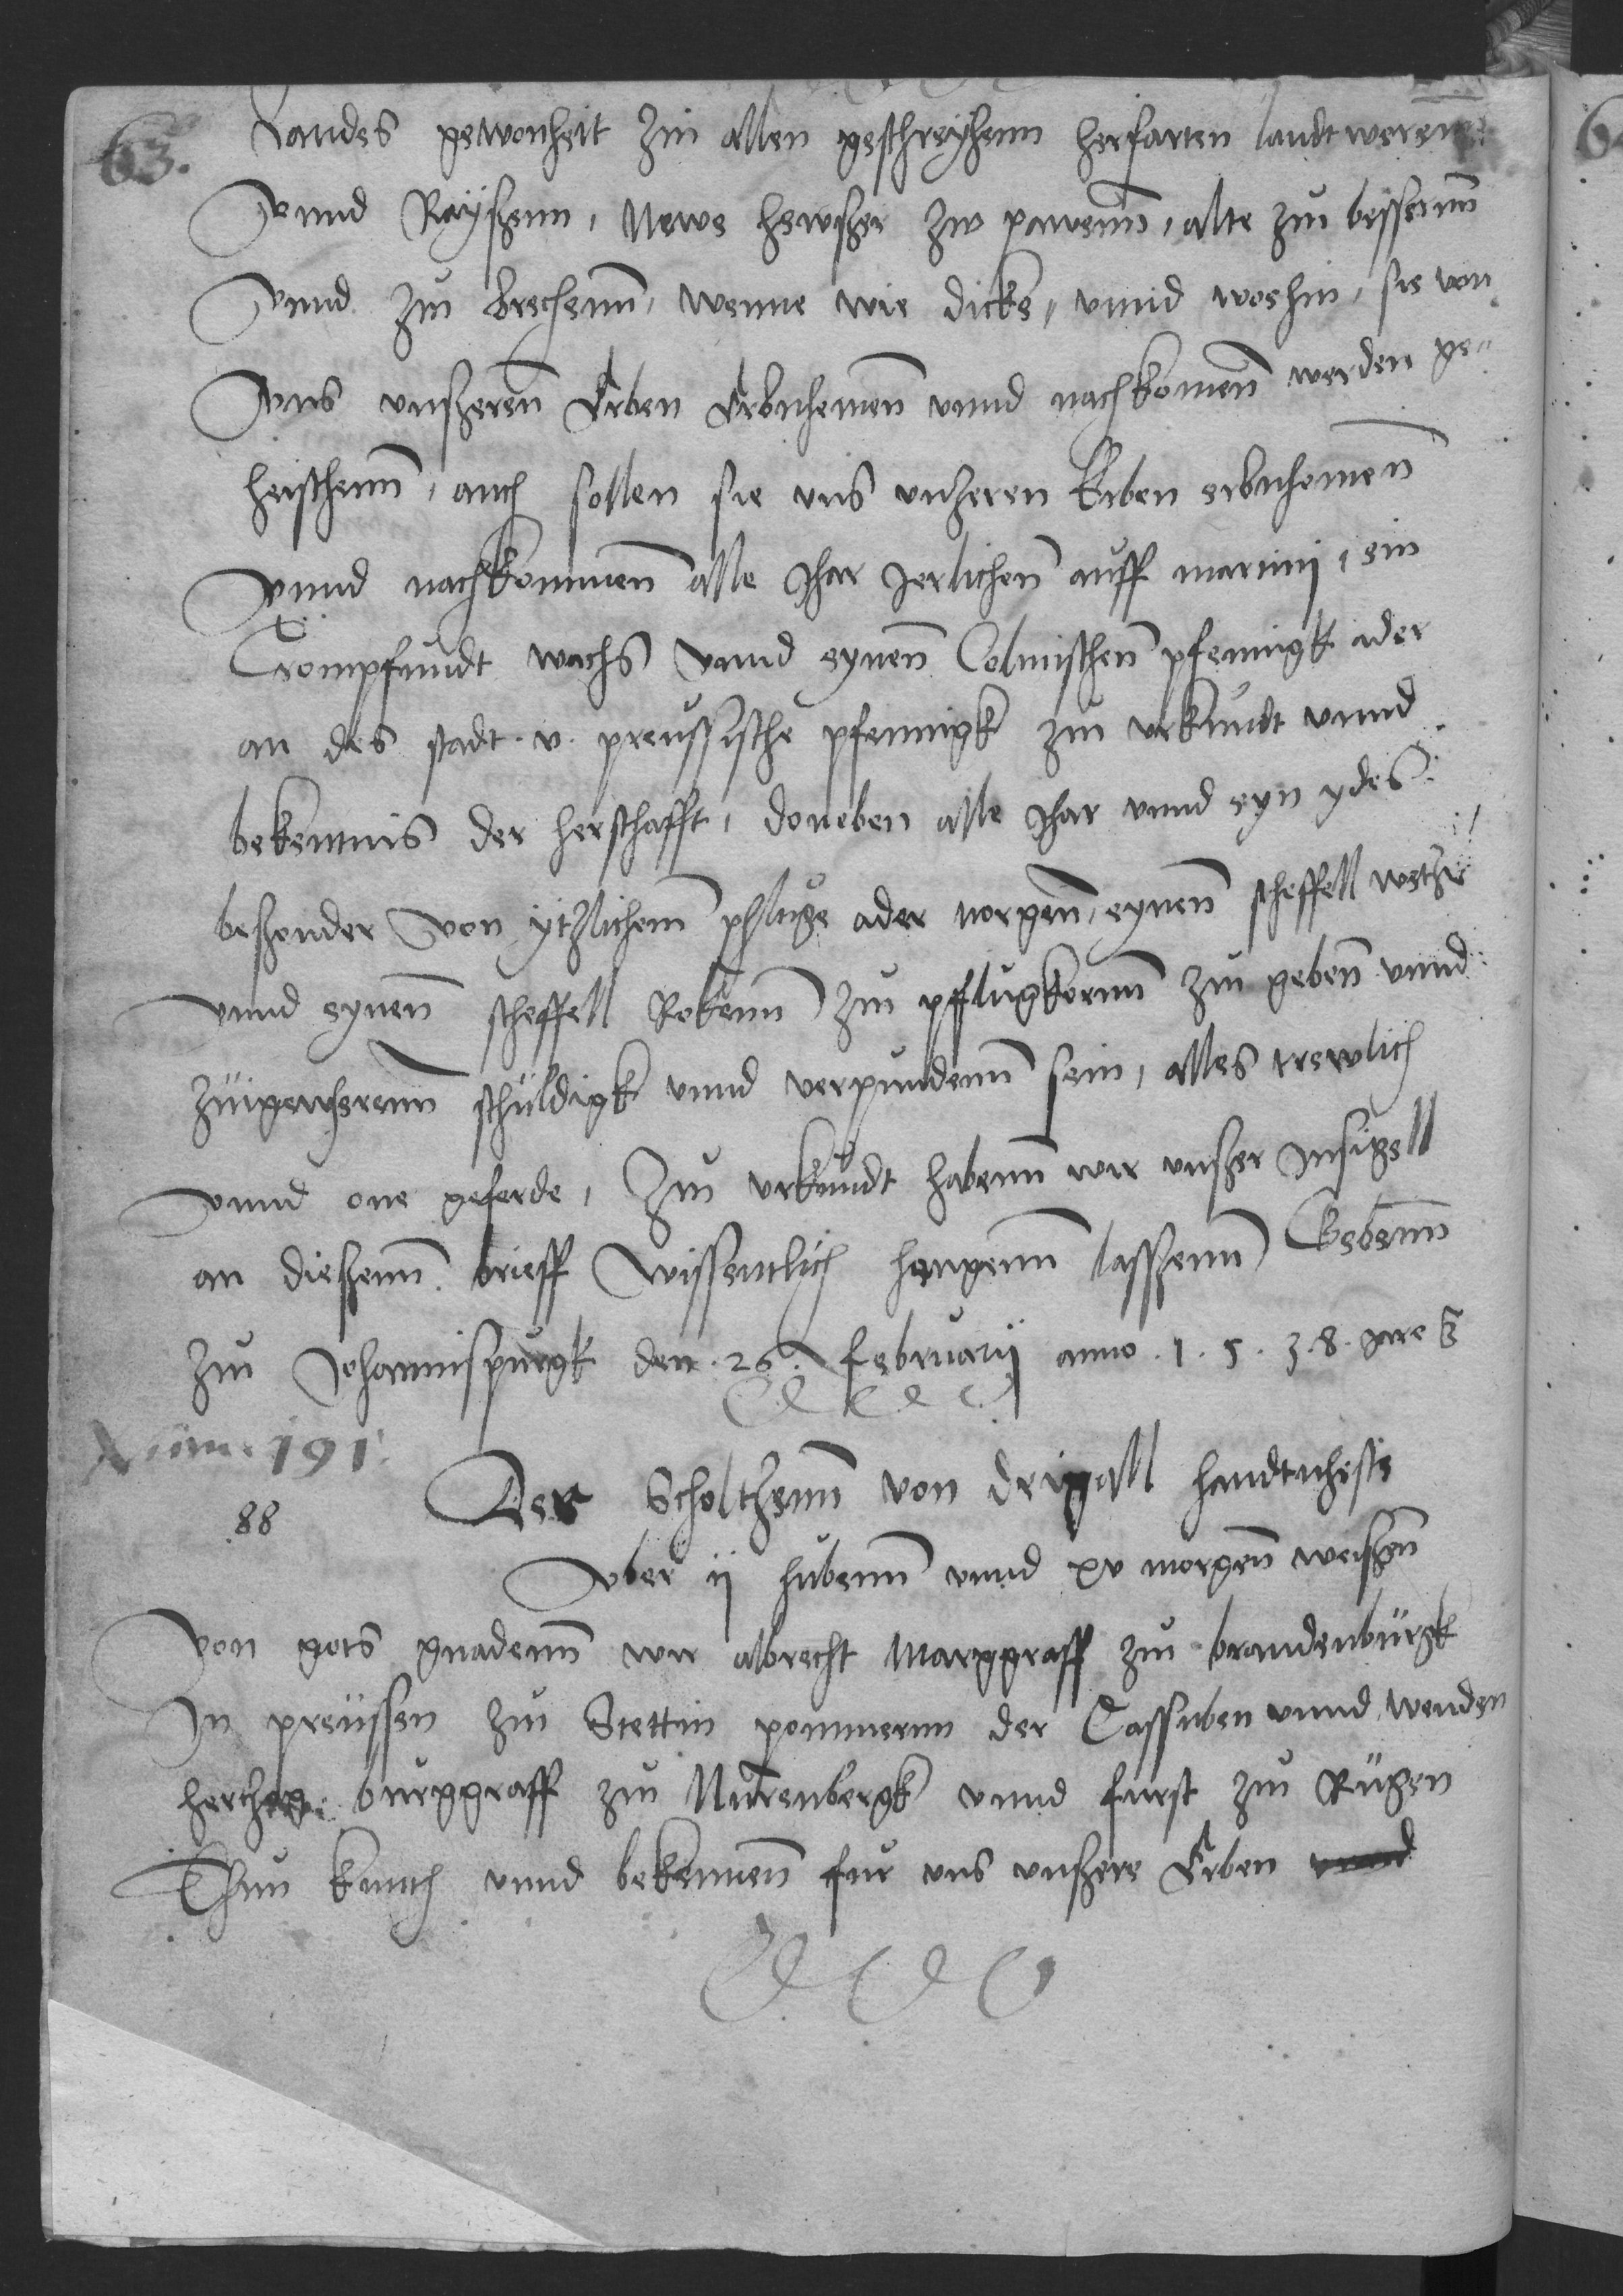 63.
Landes gewonheit Zu allen geschreyhenn herfarten landtweren
Vnnd Raysßenn, Newe hewsßer zw pawenn, alte zu bessernn
Vnnd zu brechenn, wenne wie dicke, vnnd wohin, sie von
Vns vnßerenn Erben Erbnhemen vnnd nachkomen werden ge-
heischenn, auch sollen sie vns vnßeren Erben erbnhemen
Vnnd nachkommen alle Jhar Jerlichen auff martinj, ein
Crompfundt wachs Vnnd eynen Colmischen pfennigk ader
an des stadt .v. preussische pfennigk zu vrkundt vnnd
bekentnis der herschafft, doneben alle Jhar vnnd eyn ydes
beßonder Von ytzlichem pfluge ader, eynen scheffell
vnnd eynen scheffell Rokenn zu pfflugkornn zu geben vnnd
Zugewherenn schuldigk vnnd verpundenn sein, alles trewlich
vnnd one geferde, Zu vrkundt habenn wir vnßer Insigell
an dießenn brieff wissentlich hangenn lassßenn Gebenn
Zu Johannispurgk den .26. Februarij anno .1.5.3.8. Jare
Num: 191.
88
Der Scholtzenn von drigall handtfheste
Vber ij hubenn vnnd xv morgen weißen
Von gots gnadenn wir albrecht Marggraff zu brandenburgk
In preussen zu Stettin pommernn der Cassuben vnnd wenden
hertzog burggraff zu Nurenbergk vnnd furst zu Rugen
Thun kunth vnnd bekennen fur vns vnßere Erben vnnd